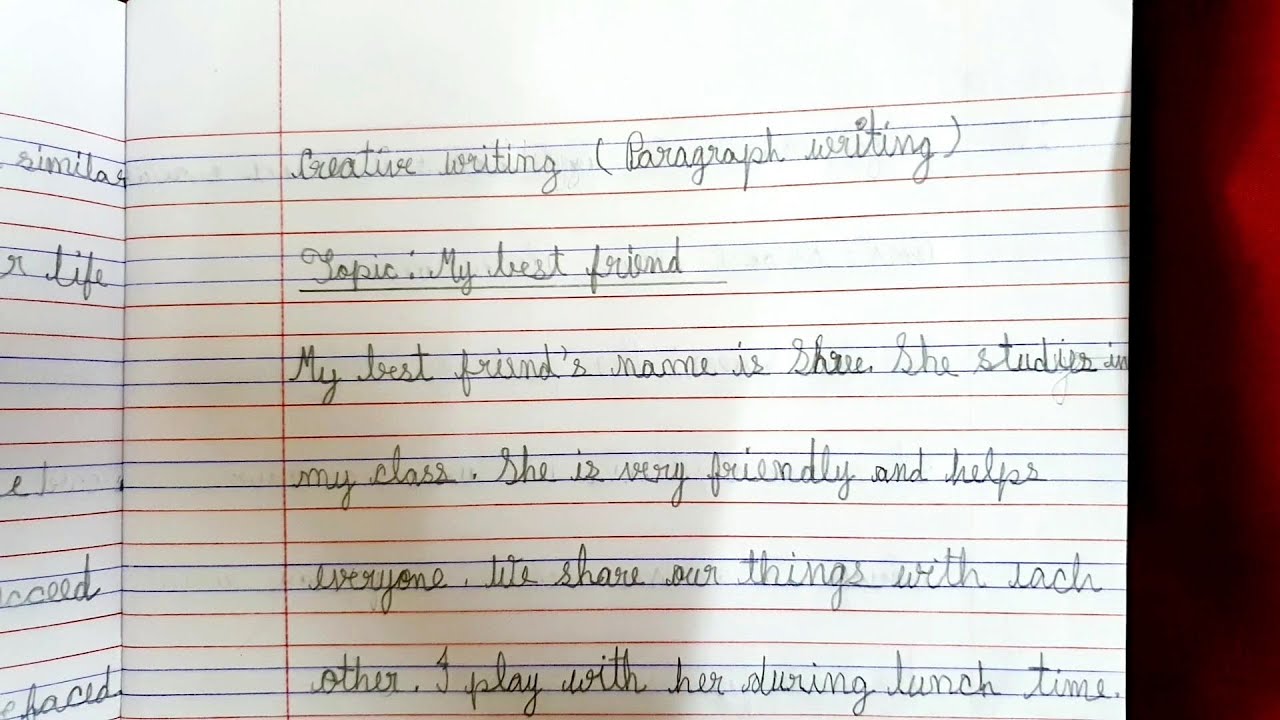 similar
r life
e
cceed
efaced
Creative writing (Paragraph writing)
Topic: My best friend
My best friend's name is Shree. She studies in
my class. She is very friendly and helps
everyone. We share our things with each
other. I play with her during lunch time.